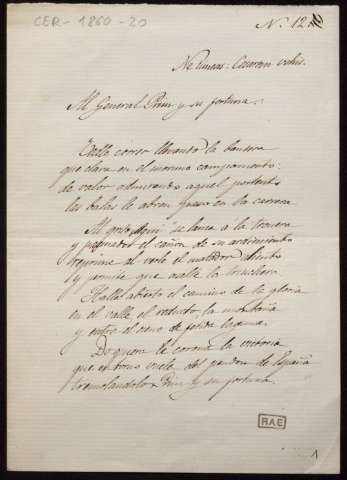 CER-1860-20
N. 12
Ne timeas: Cæsarem vehis.
Al General Prim y su fortuna.
Vedle correr llevando la bandera
que clava en el moruno campamento:
de valor admirando aquel portento
las balas le abren paso en la carrera
Al grito ¡Aquí! se lanza a la tronera
y el cañon de su ardimiento
reprime al verle el matador aliento
y permite que asalte la trinchera.
Halla abierto el camino de la gloria
en el valle, el reducto, la montaña
y entre el cieno de fétida laguna.
Do quiera le corona la victoria
que en torno vuela del pendon de España
tremolandolo Prim y su fortuna.
RAE
1